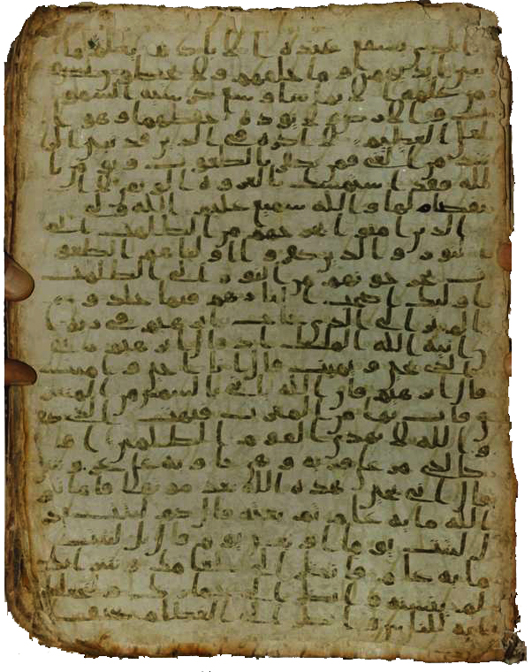 ا لذى يشفع عنده ا لا باذنه يعلم ما
بين ايديهم و ما خلفهم ولا يحيطون بشى
من علمه ا لا بما شا و سع كرسيه السمو
ت و ا لا رض و لا يوده حفظهما و هو ا
لعلى العظيم لا اكره فى الدين قد تبين الر
شد من ا لغى فمن يكفر بالطغوت و يومن با
لله فقد ا ستمسك بالعروه ا لوثقى لا ا
نفصام لها و ا لله سميع عليم ا لله ولى
الذين امنوا يخرجهم من ا لظلمت الى
النور و الذين كفروا اولياهم الطغو
ت يخرجونهم من النور الى الظلمت
اوليك اصحب ا لنار هم فيها خلدون
الم تر الى الذى حاج ابرهيم فى ربه ا
ن اتيه الله الملك اذ قال ابرهيم ربى
الذى يحيى و يميت قال انا احيى و اميت
قال ابرهيم فان الله ياتى بالشمس من المشر
ق فات بها من المغرب فبهت الذى كفر
و الله لا يهدى القوم الظلمين ا و كا
لذى مر على قريه و هى خاويه على
قال انى يحيى هذه الله بعد موتها فاماته
الله مايه عام ثم بعثه قال كم لبثت قا
ل لبثت يوما او بعض يوم قال بل لبثت
مايه عام فانظر الى طعامك و شرابك
لم يتسنه و انظر الى حمارك و لنجعلك
ايه للناس و انظر الى العظام كيف